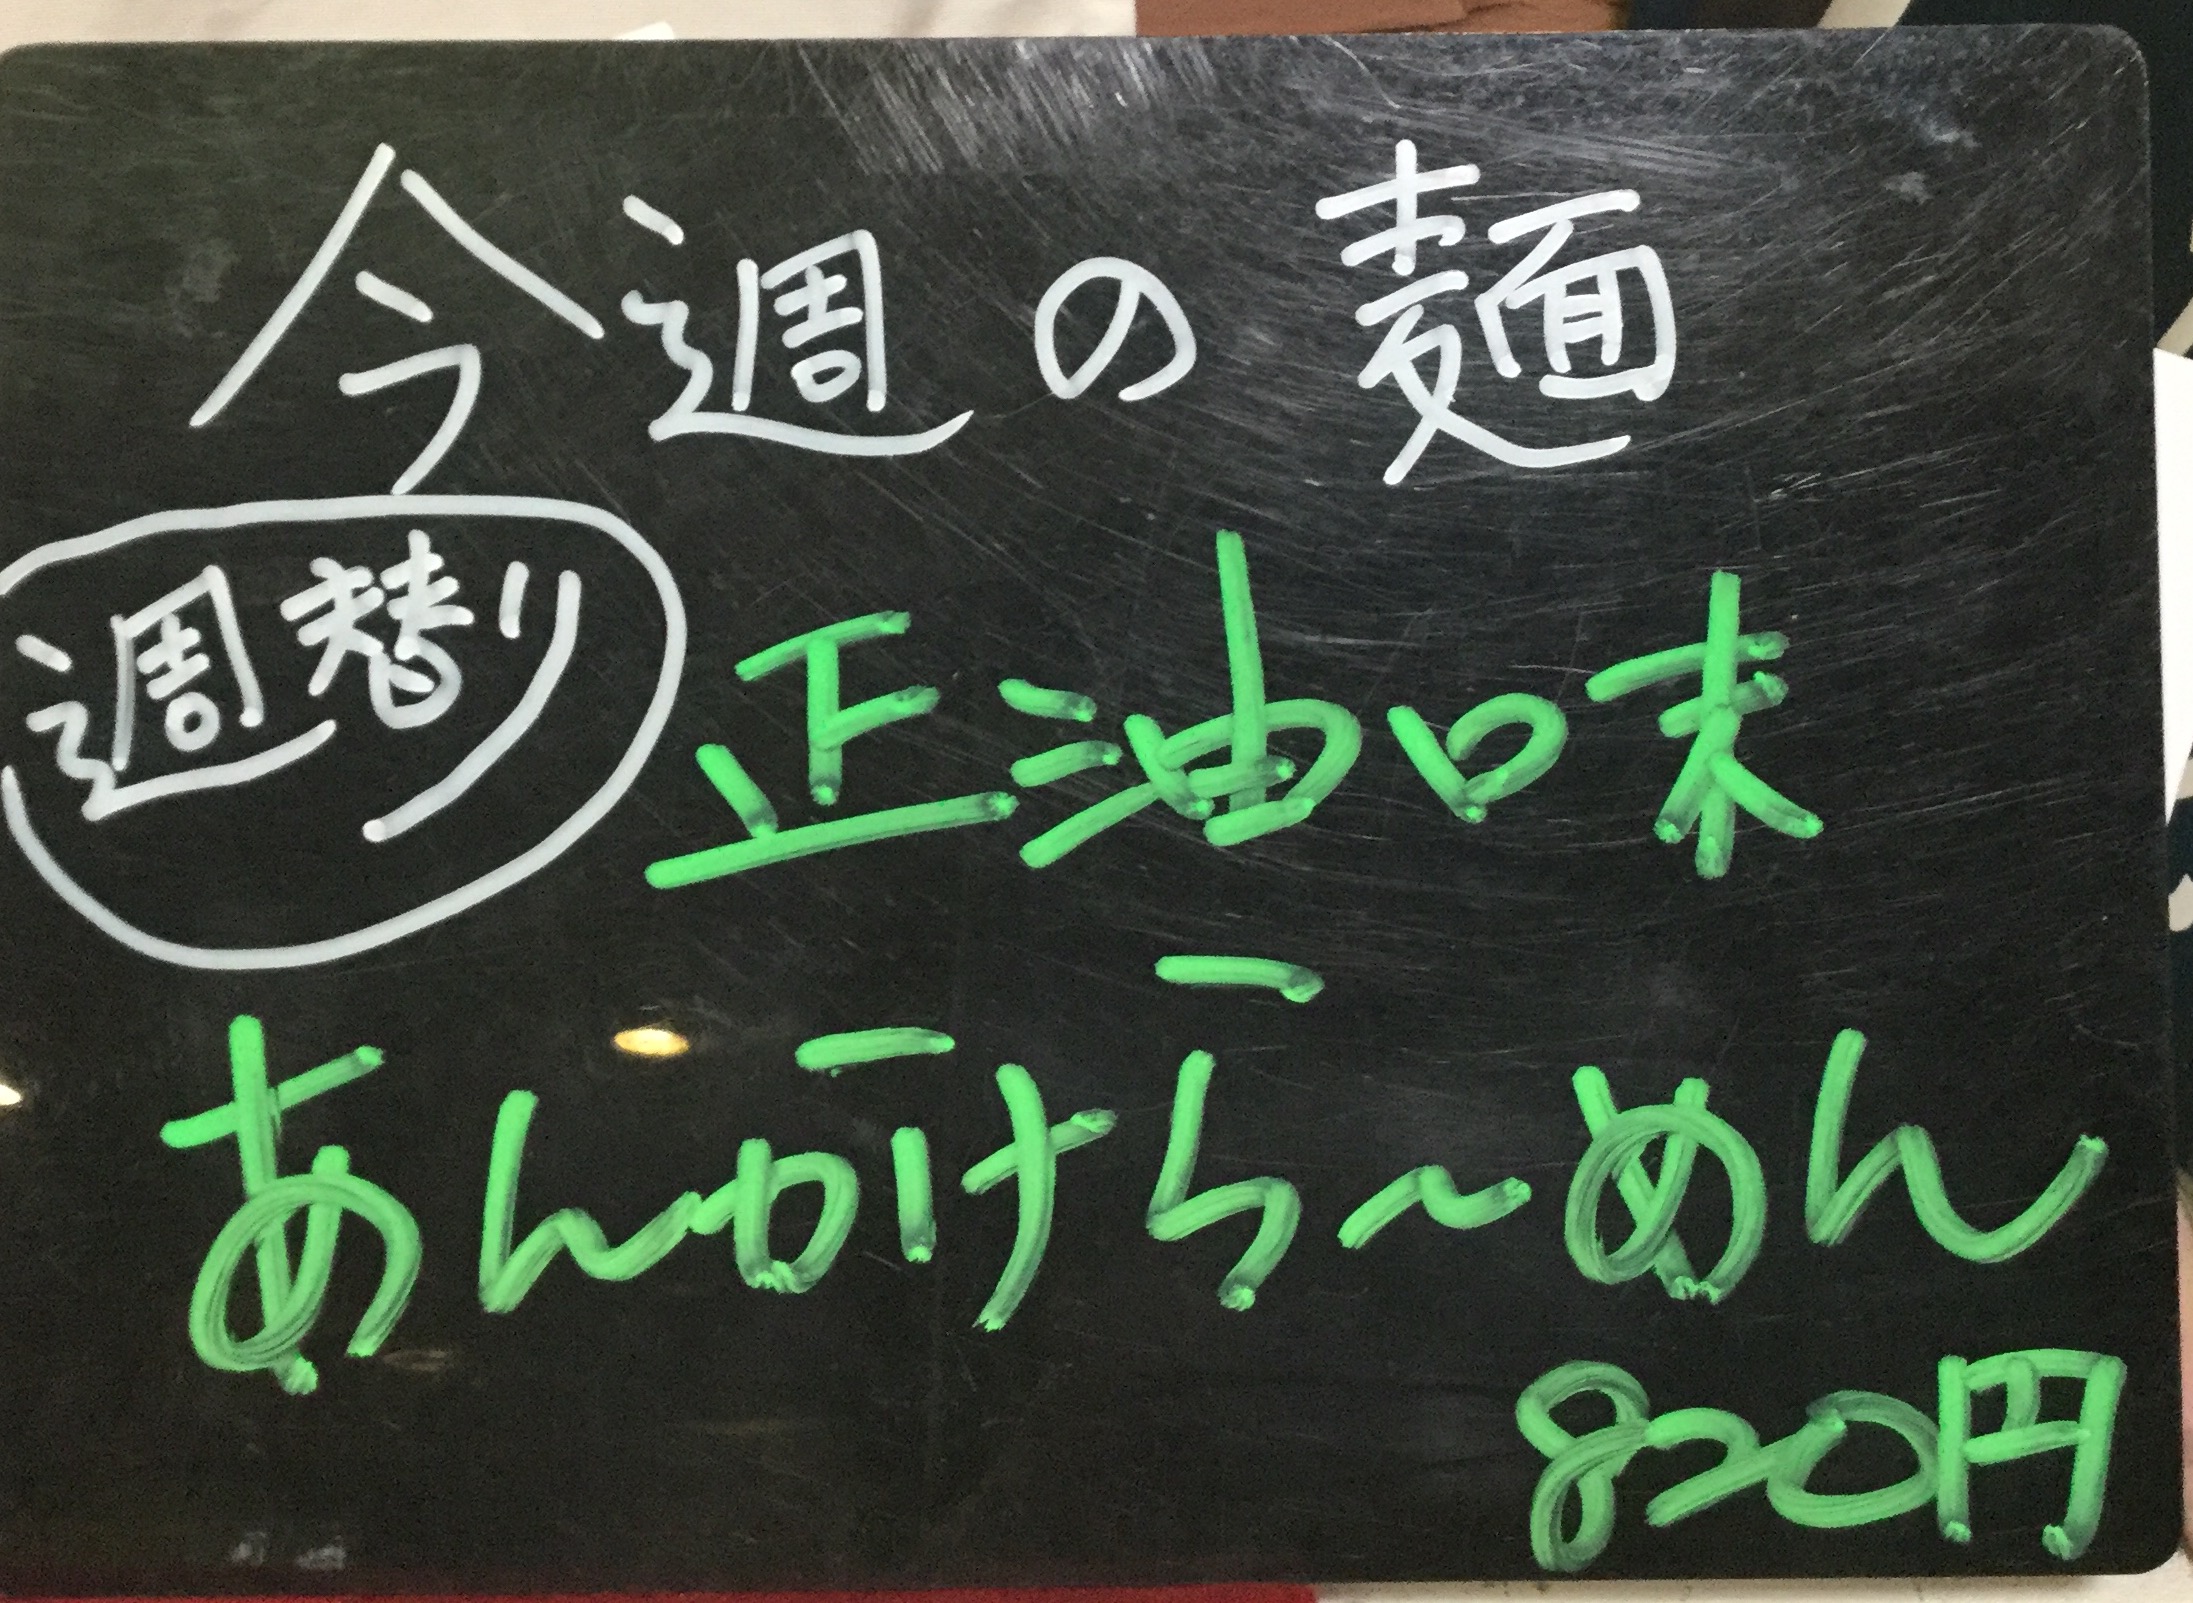 今週の麺
週替り
正油味
あんかけら〜めん
820円